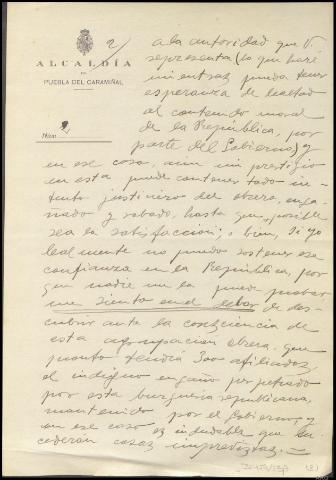 2
ALCALDÍA
DE
PUEBLA DEL CARAMIÑAL
Núm. 2
a la autoridad que V.
representa (lo que haré
mientras pueda tener
esperanza de lealtad
al contenido moral
de la República, por
parte del Gobierno) y
en ese caso, aún mi prestigio
en esta puede contener todo in-
tento justiciero del obrero, enga-
ñado y robado, hasta que, posible
sea la satisfacción; o bien, si yo
lealmente no puedo sostener esa
confianza en la República, por
que nadie me la puede probar
me siento en el deber de des-
cubrir ante la conciencia de
esta agrupación obrera, que
pronto tendrá 300 afiliados,
el indigno engaño perpetrado
por esta burguesía republicana,
mantenido por el Gobierno, y
en ese caso es indudable que su-
cederán cosas imprevistas.=